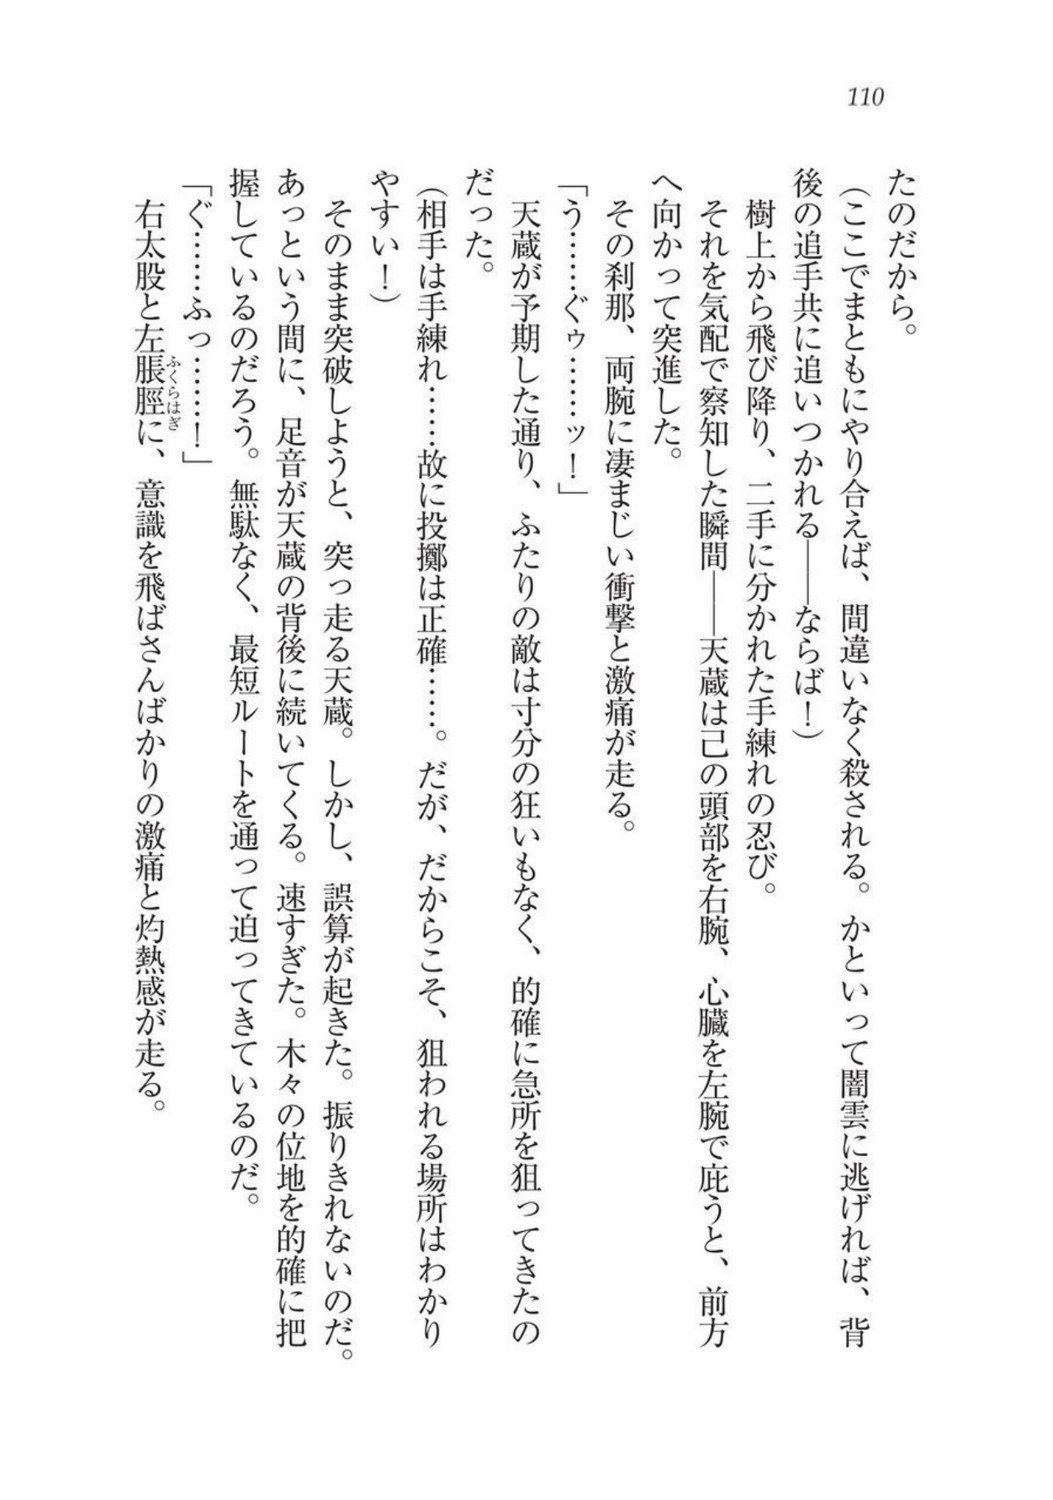 110
たのだから。
（ここでまともにやり合えば、間違いなく殺される。かといって闇雲に逃げれば、背
後の追手共に追いつかれる――ならば！）
樹上から飛び降り、二手に分かれた手練れの忍び。
それを気配で察知した瞬間――天蔵は己の頭部を右腕、心臓を左腕で庇うと、前方
へ向かって突進した。
その刹那、両腕に凄まじい衝撃と激痛が走る。
「う……ぐゥ……ッ！」
天蔵が予期した通り、ふたりの敵は寸分の狂いもなく、的確に急所を狙ってきたの
だった。
（相手は手練れ……故に投擲は正確……。だが、だからこそ、狙われる場所はわかり
やすい！）
そのまま突破しようと、突っ走る天蔵。しかし、誤算が起きた。振りきれないのだ。
あっという間に、足音が天蔵の背後に続いてくる。速すぎた。木々の位地を的確に把
握しているのだろう。無駄なく、最短ルートを通って迫ってきているのだ。
「ぐ……ふっ……！」
右太股と左脹脛に、意識を飛ばさんばかりの激痛と灼熱感が走る。
ふくらはぎ